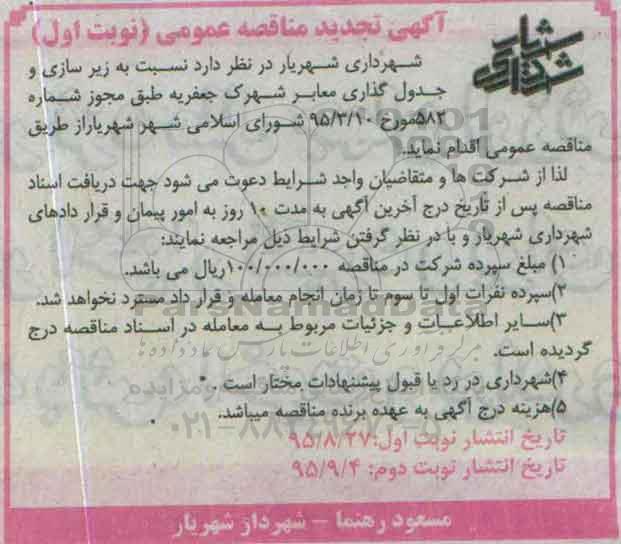 آگهی تجدید مناقصه عمومی (نوبت اول)
شهرداری شهریار
شهرداری شهریار در نظر دارد نسبت به زیر سازی و
جدول گذاری معابر شهرک جعفریه طبق مجوز شماره
۵۸۲مورخ ۹۵/۳/۱۰ شورای اسلامی شهر شهریاراز طریق
مناقصه عمومی اقدام نماید.
لذا از شرکت ها و متقاضیان واجد شرایط دعوت می شود جهت دریافت اسناد
مناقصه پس از تاریخ درج آخرین آگهی به مدت ۱۰ روز به امور پیمان و قرار دادهای
شهرداری شهریار و با در نظر گرفتن شرایط ذیل مراجعه نمایند:
۱) مبلغ سپرده شرکت در مناقصه ۱۰۰/۰۰۰/۰۰۰ریال می باشد.
۲)سپرده نفرات اول تا سوم تا زمان انجام معامله و قرار داد مسترد نخواهد شد.
۳)سایر اطلاعات و جزئیات مربوط به معامله در اسناد مناقصه درج
گردیده است.
۴)شهرداری در رد یا قبول پیشنهادات مختار است .
۵)هزینه درج آگهی به عهده برنده مناقصه میباشد.
تاریخ انتشار نوبت اول:۹۵/۸/۲۷
تاریخ انتشار نوبت دوم: ۹۵/۹/۴
مسعود رهنما – شهردار شهریار
ParsNamadData
مرکز فرآوری اطلاعات پارس نماد داده ها